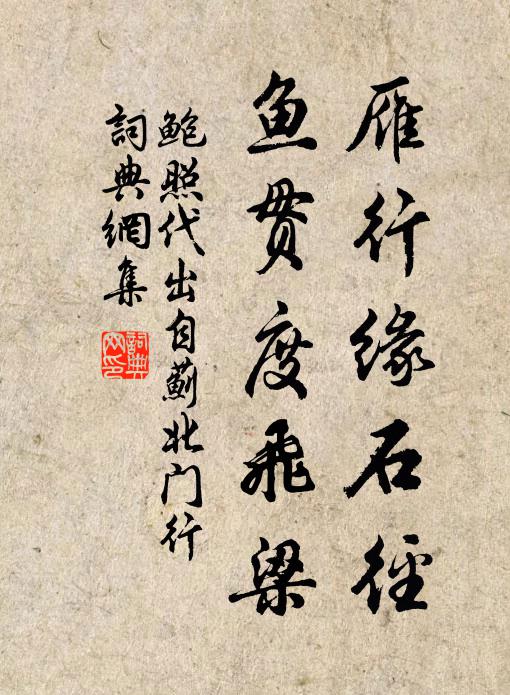 雁行缘石径
鱼贯度飞梁
鲍照代出自蓟北门行
詞典網集
詞典网印